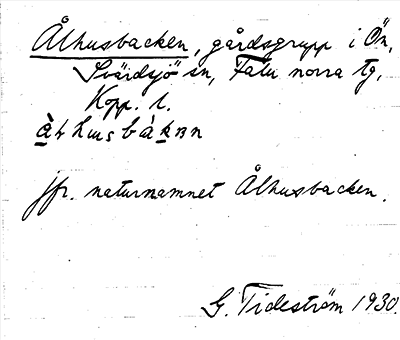 Ålhusbacken, gårdsgrupp i Ön,
Svärdsjö sn, Falu norra tg,
Kopp. l.
jfr. naturnamnet Ålhusbacken.
G. Tideström 1930.